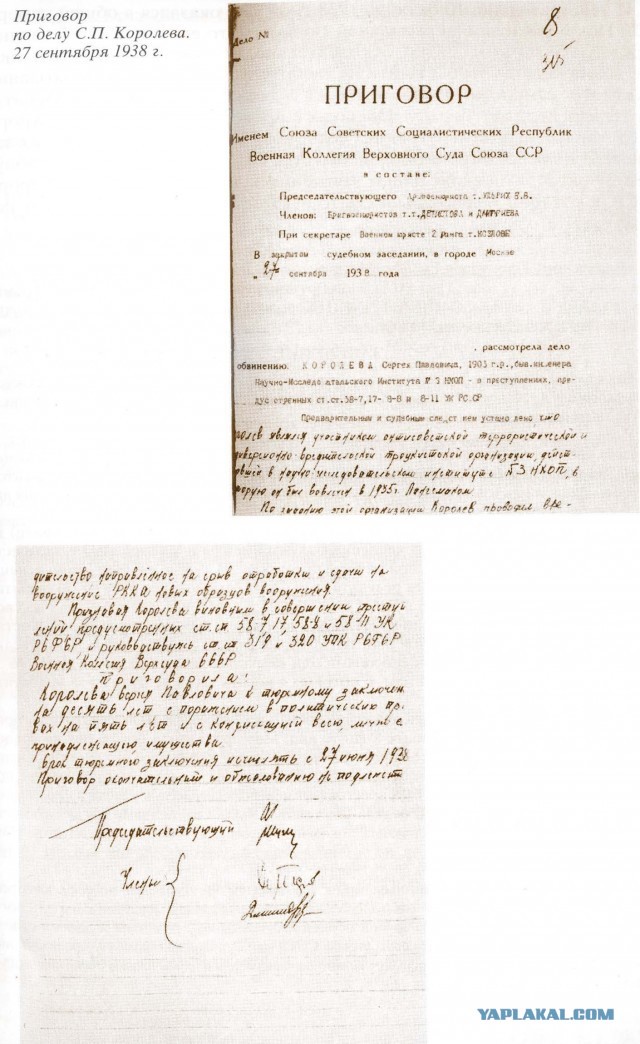 Приговор
по делу С.П. Королева.
27 сентября 1938 г.
Дело №
8
315
ПРИГОВОР
Именем Союза Советских Социалистических Республик
Военная Коллегия Верховного Суда Союза ССР
в составе:
Председательствующего Армвоенюриста т. УЛЬРИХ В.В.
Членов: Бригвоенюристов т.т. ДЕТИСТОВА и ДМИТРИЕВА
При секретаре Военном юристе 2 ранга т. КОЗЛОВЕ
В закрытом судебном заседании, в городе Москве
„27" сентября 1938 года
, рассмотрела дело
обвинению: КОРОЛЕВА Сергея Павловича, 1903 г.р., быв.инженера
Научно-Исследо ательского Института № 3 НКОП - в преступлениях, пре-
дус отренных ст.ст.58-7,17- 8-8 и 8-11 УК РС.СР
Предварительным и судебным следст ием устано лено, что
ролев являлся участником антисоветской террористической и
диверсионно-вредительской троцкистской организации, дейст-
вшей в научно-исследовательском институте №3 НКОП, в
торую он был вовлечен в 1935г.
По заданию этой организации Королев проводил вре-
дительство направленное на срыв отработки и сдачи на
вооружение РККА новых образцов вооружения.
Признавая Королева виновным в совершении преступ
лений предусмотренных ст.ст 58-7, 17, 58-8 и 58-11 УК
РСФСР, и руководствуясь ст.ст 319 и 320 УПК РСФСР
Военная Коллегия Верхсуда СССР
Приговорила:
Королева Сергея Павловича к тюремному заключен
на десять лет с поражением в политических пр
вах на пять лет и с конфискацией всего, лично е
принадлежащего, имущества.
Срок тюремного заключения исчислять с 27 июня 1938
Приговор окончательный и обжалованию не подлежит
Председательствующий
Члены
YAPLAKAL.COM